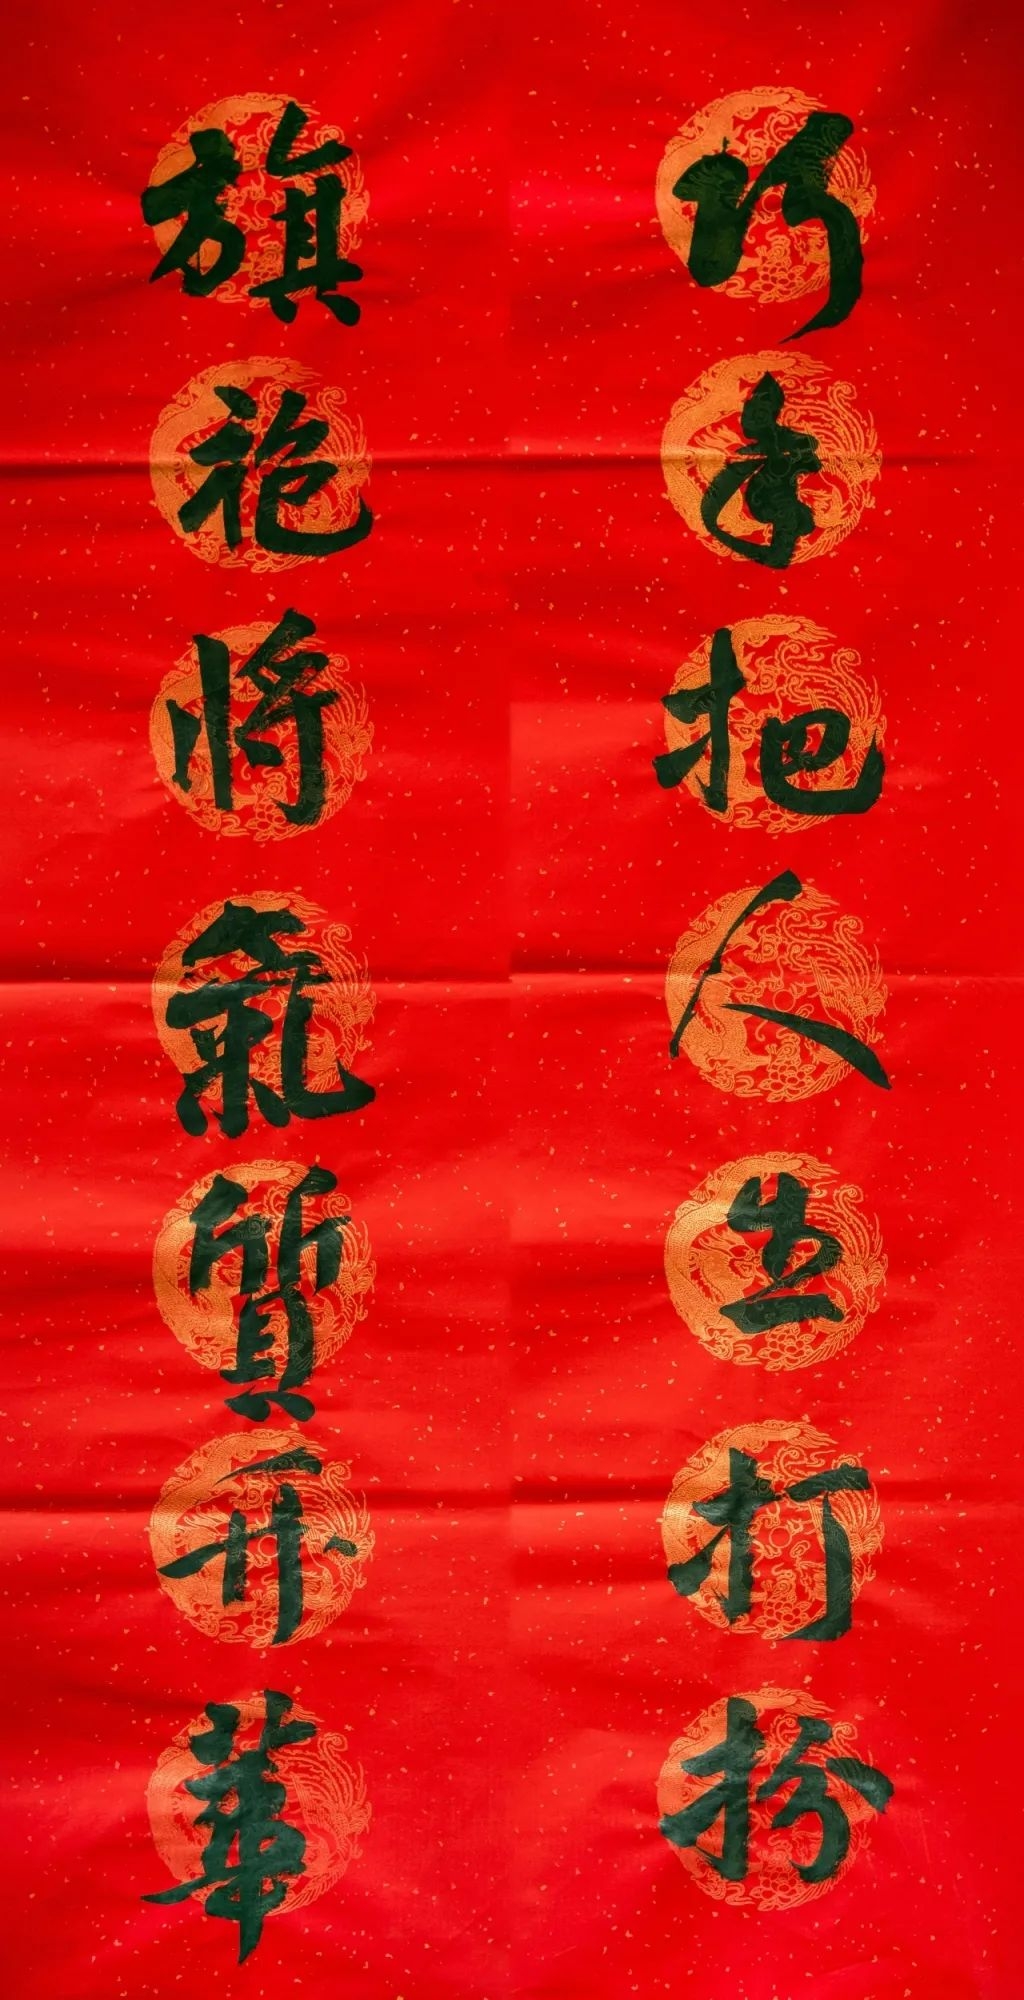 巧手把人生打扮
旗袍將氣質升華